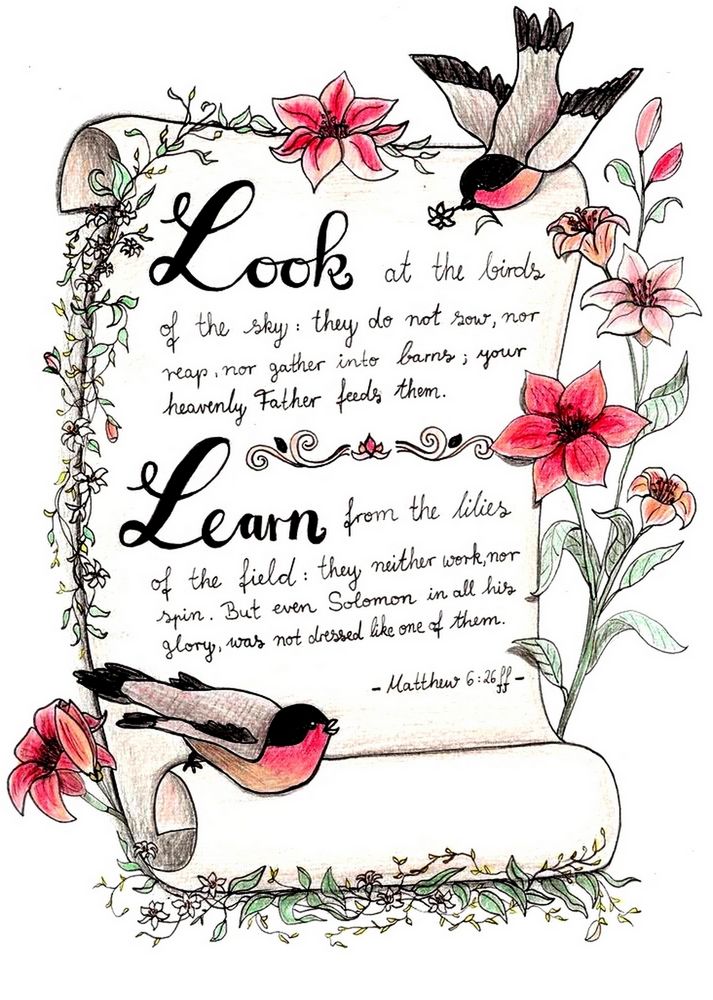 Look at the birds
of the sky: they do not sow, nor
reap, nor gather into barns; your
heavenly Father feeds them.
Learn from the lilies
of the field: they neither work, nor
spin. But even Solomon in all his
glory, was not dressed like one of them.
- Matthew 6:26ff -